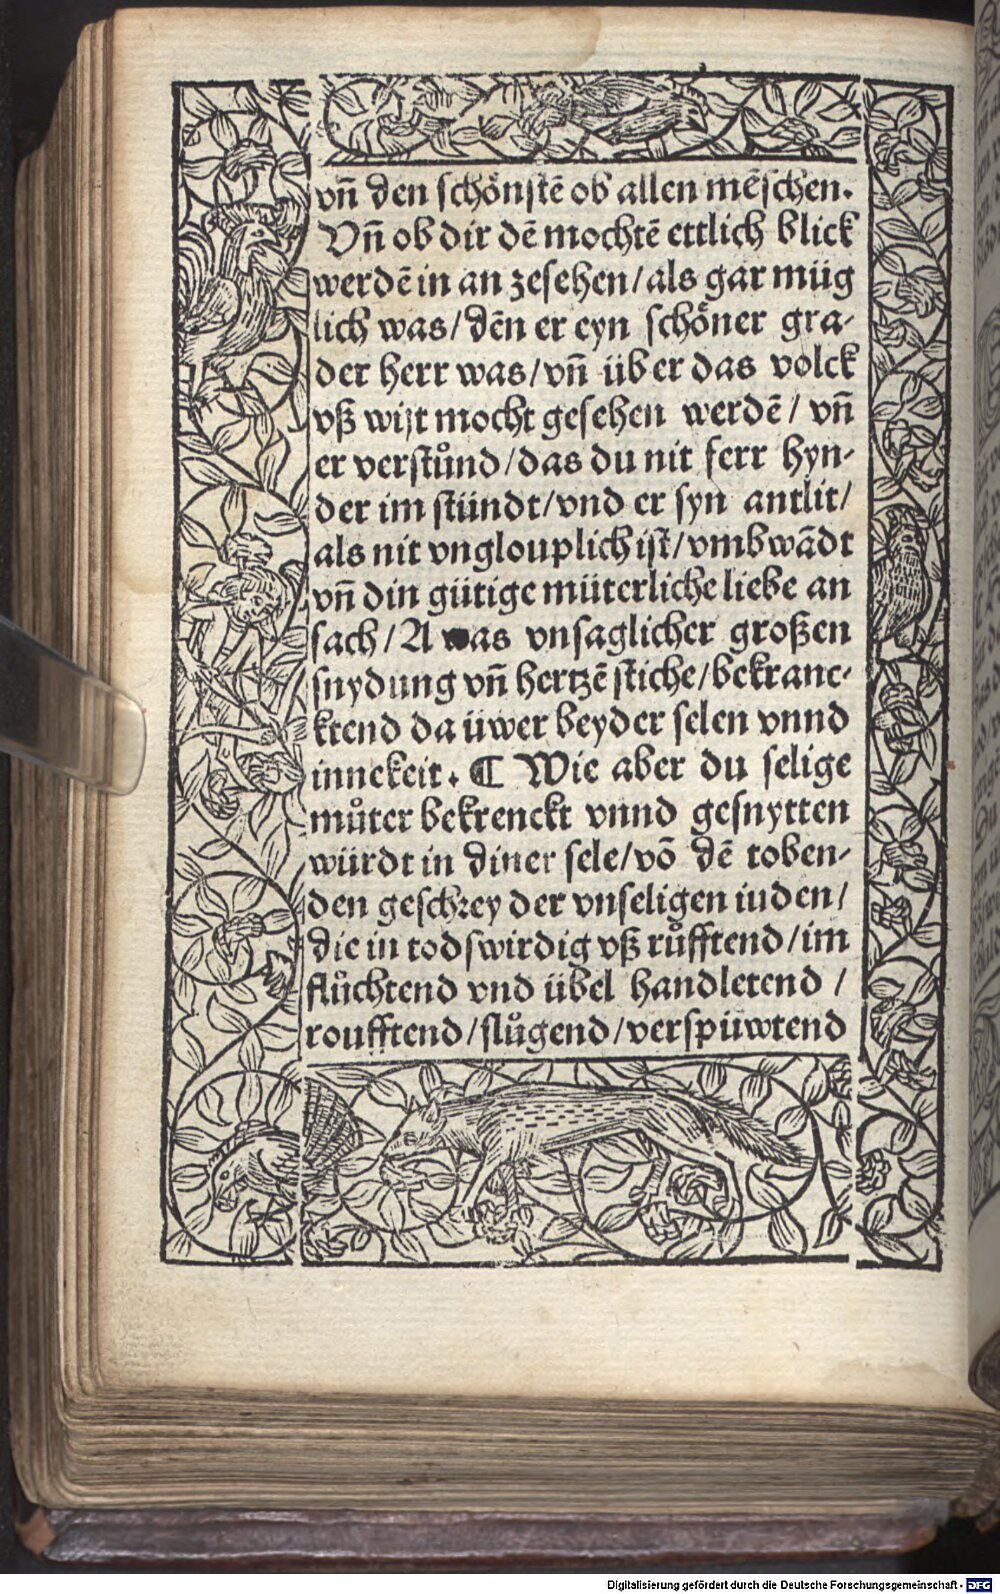 vn̄ den schoͤnstē ob allen mēschen.
Vn̄ ob dir dē mochtē ettlich blick
werdē in an zesehen/als gar müg
lich was/dēn er eyn schoͤner gra-
der herr was/vn̄ über das volck
vß wijt mocht gesehen werdē/vn̄
er verstuͦnd/das du nit ferr hyn-
der im stündt/vnd er syn antlit/
als nit vnglouplich ist/vmbwādt
vn̄ din gütige müterliche liebe an
sach/A was vnsaglicher großen
snydung vn̄ hertzē stiche/bekranc-
ktend da üwer beyder selen vnnd
innekeit. ¶ Wie aber du selige
muͦter bekrenckt vnnd gesnytten
würdt in diner sele/vō dē toben-
den geschrey der vnseligen iuden/
die in todswirdig vß ruͦfftend/im
fluͦchtend vnd übel handletend/
roufftend/sluͦgend/verspüwtend
Digitalisierung gefördert durch die Deutsche Forschungsgemeinschaft - DFG